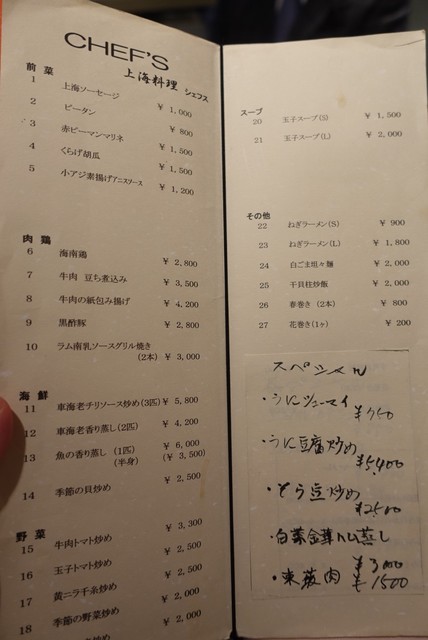 CHEF'S
上海料理 シェフス
前 菜
1 上海ソーセージ ¥ 1,000
2 ピータン ¥ 800
3 赤ピーマンマリネ ¥ 1,500
4 くらげ胡瓜 ¥ 1,500
5 小アジ素揚げアニスソース ¥ 1,200
肉 鶏
6 海南鶏 ¥ 2,800
7 牛肉 豆ち煮込み ¥ 3,500
8 牛肉の紙包み揚げ ¥ 4,200
9 黒酢豚 ¥ 2,800
10 ラム南乳ソースグリル焼き
(2本) ¥ 3,000
海 鮮
11 車海老チリソース炒め(3匹) ¥ 5,800
12 車海老香り蒸し(2匹) ¥ 4,200
13 魚の香り蒸し (1匹) ¥ 6,000
(半身) (¥ 3,500)
14 季節の貝炒め ¥ 2,500
野 菜
15 牛肉トマト炒め ¥ 3,300
16 玉子トマト炒め ¥ 2,500
17 黄ニラ干糸炒め ¥ 2,500
18 季節の野菜炒め ¥ 2,000
¥ 2,000
スープ
20 玉子スープ(S) ¥ 1,500
21 玉子スープ(L) ¥ 2,000
その他
22 ねぎラーメン(S) ¥ 900
23 ねぎラーメン(L) ¥ 1,800
24 白ごま坦々麺 ¥ 2,000
25 干貝柱炒飯 ¥ 2,000
26 春巻き (2本) ¥ 800
27 花巻き(1ヶ) ¥ 200
スペシャル
・うにシューマイ
¥750
・うに豆腐炒め
¥5,400
・そら豆炒め
¥2500
・白菜金華ハム蒸し
¥3000
・東坡肉 ¥1500